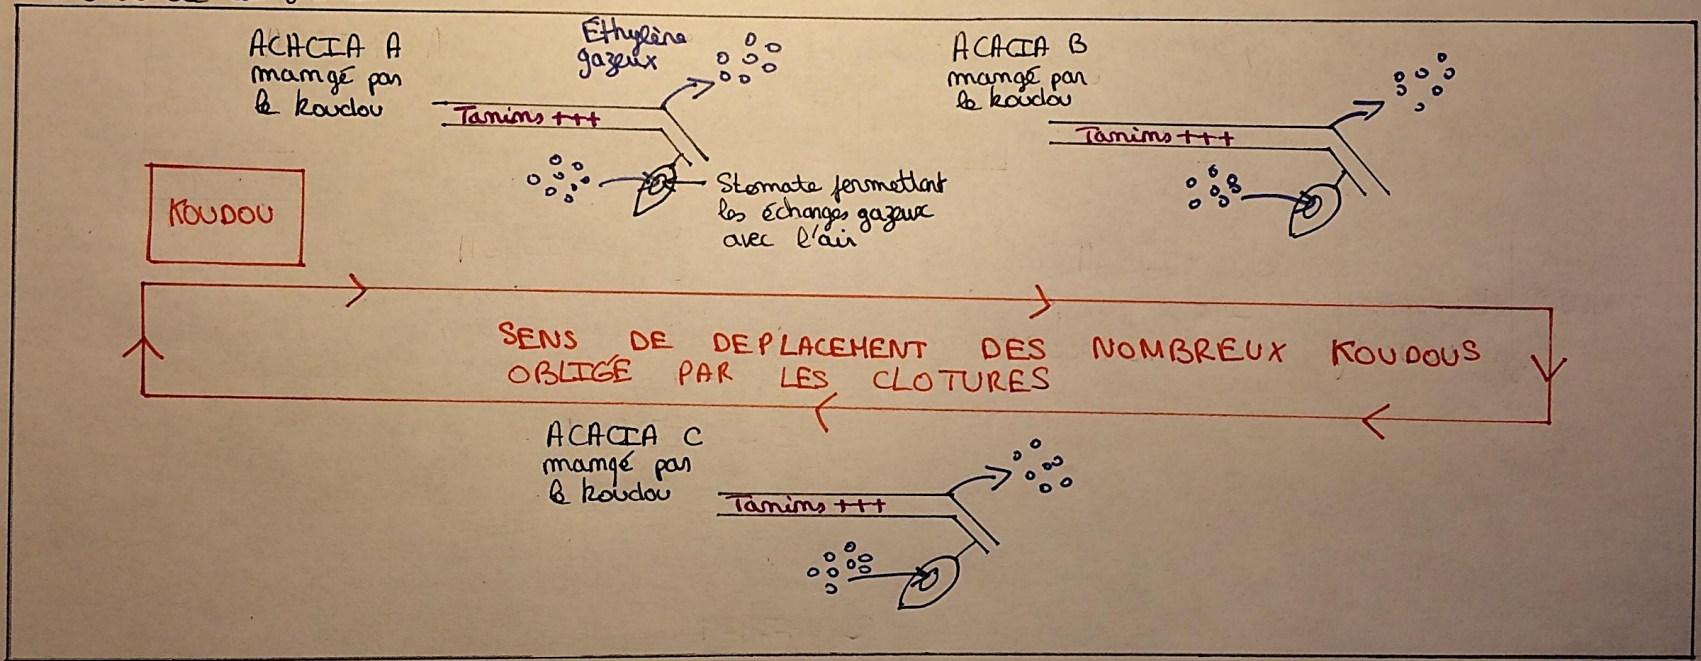 ACACIA A
mangé par
le koudou
Éthylène
gazeux
Tanins +++
Stomate permettant
les échanges gazeux
avec l'air
ACACIA B
mangé par
le koudou
Tanins +++
KOUDOU
SENS DE DEPLACEMENT DES NOMBREUX KOUDOUS
OBLIGÉ PAR LES CLOTURES
ACACIA C
mangé par
le koudou
Tanins +++